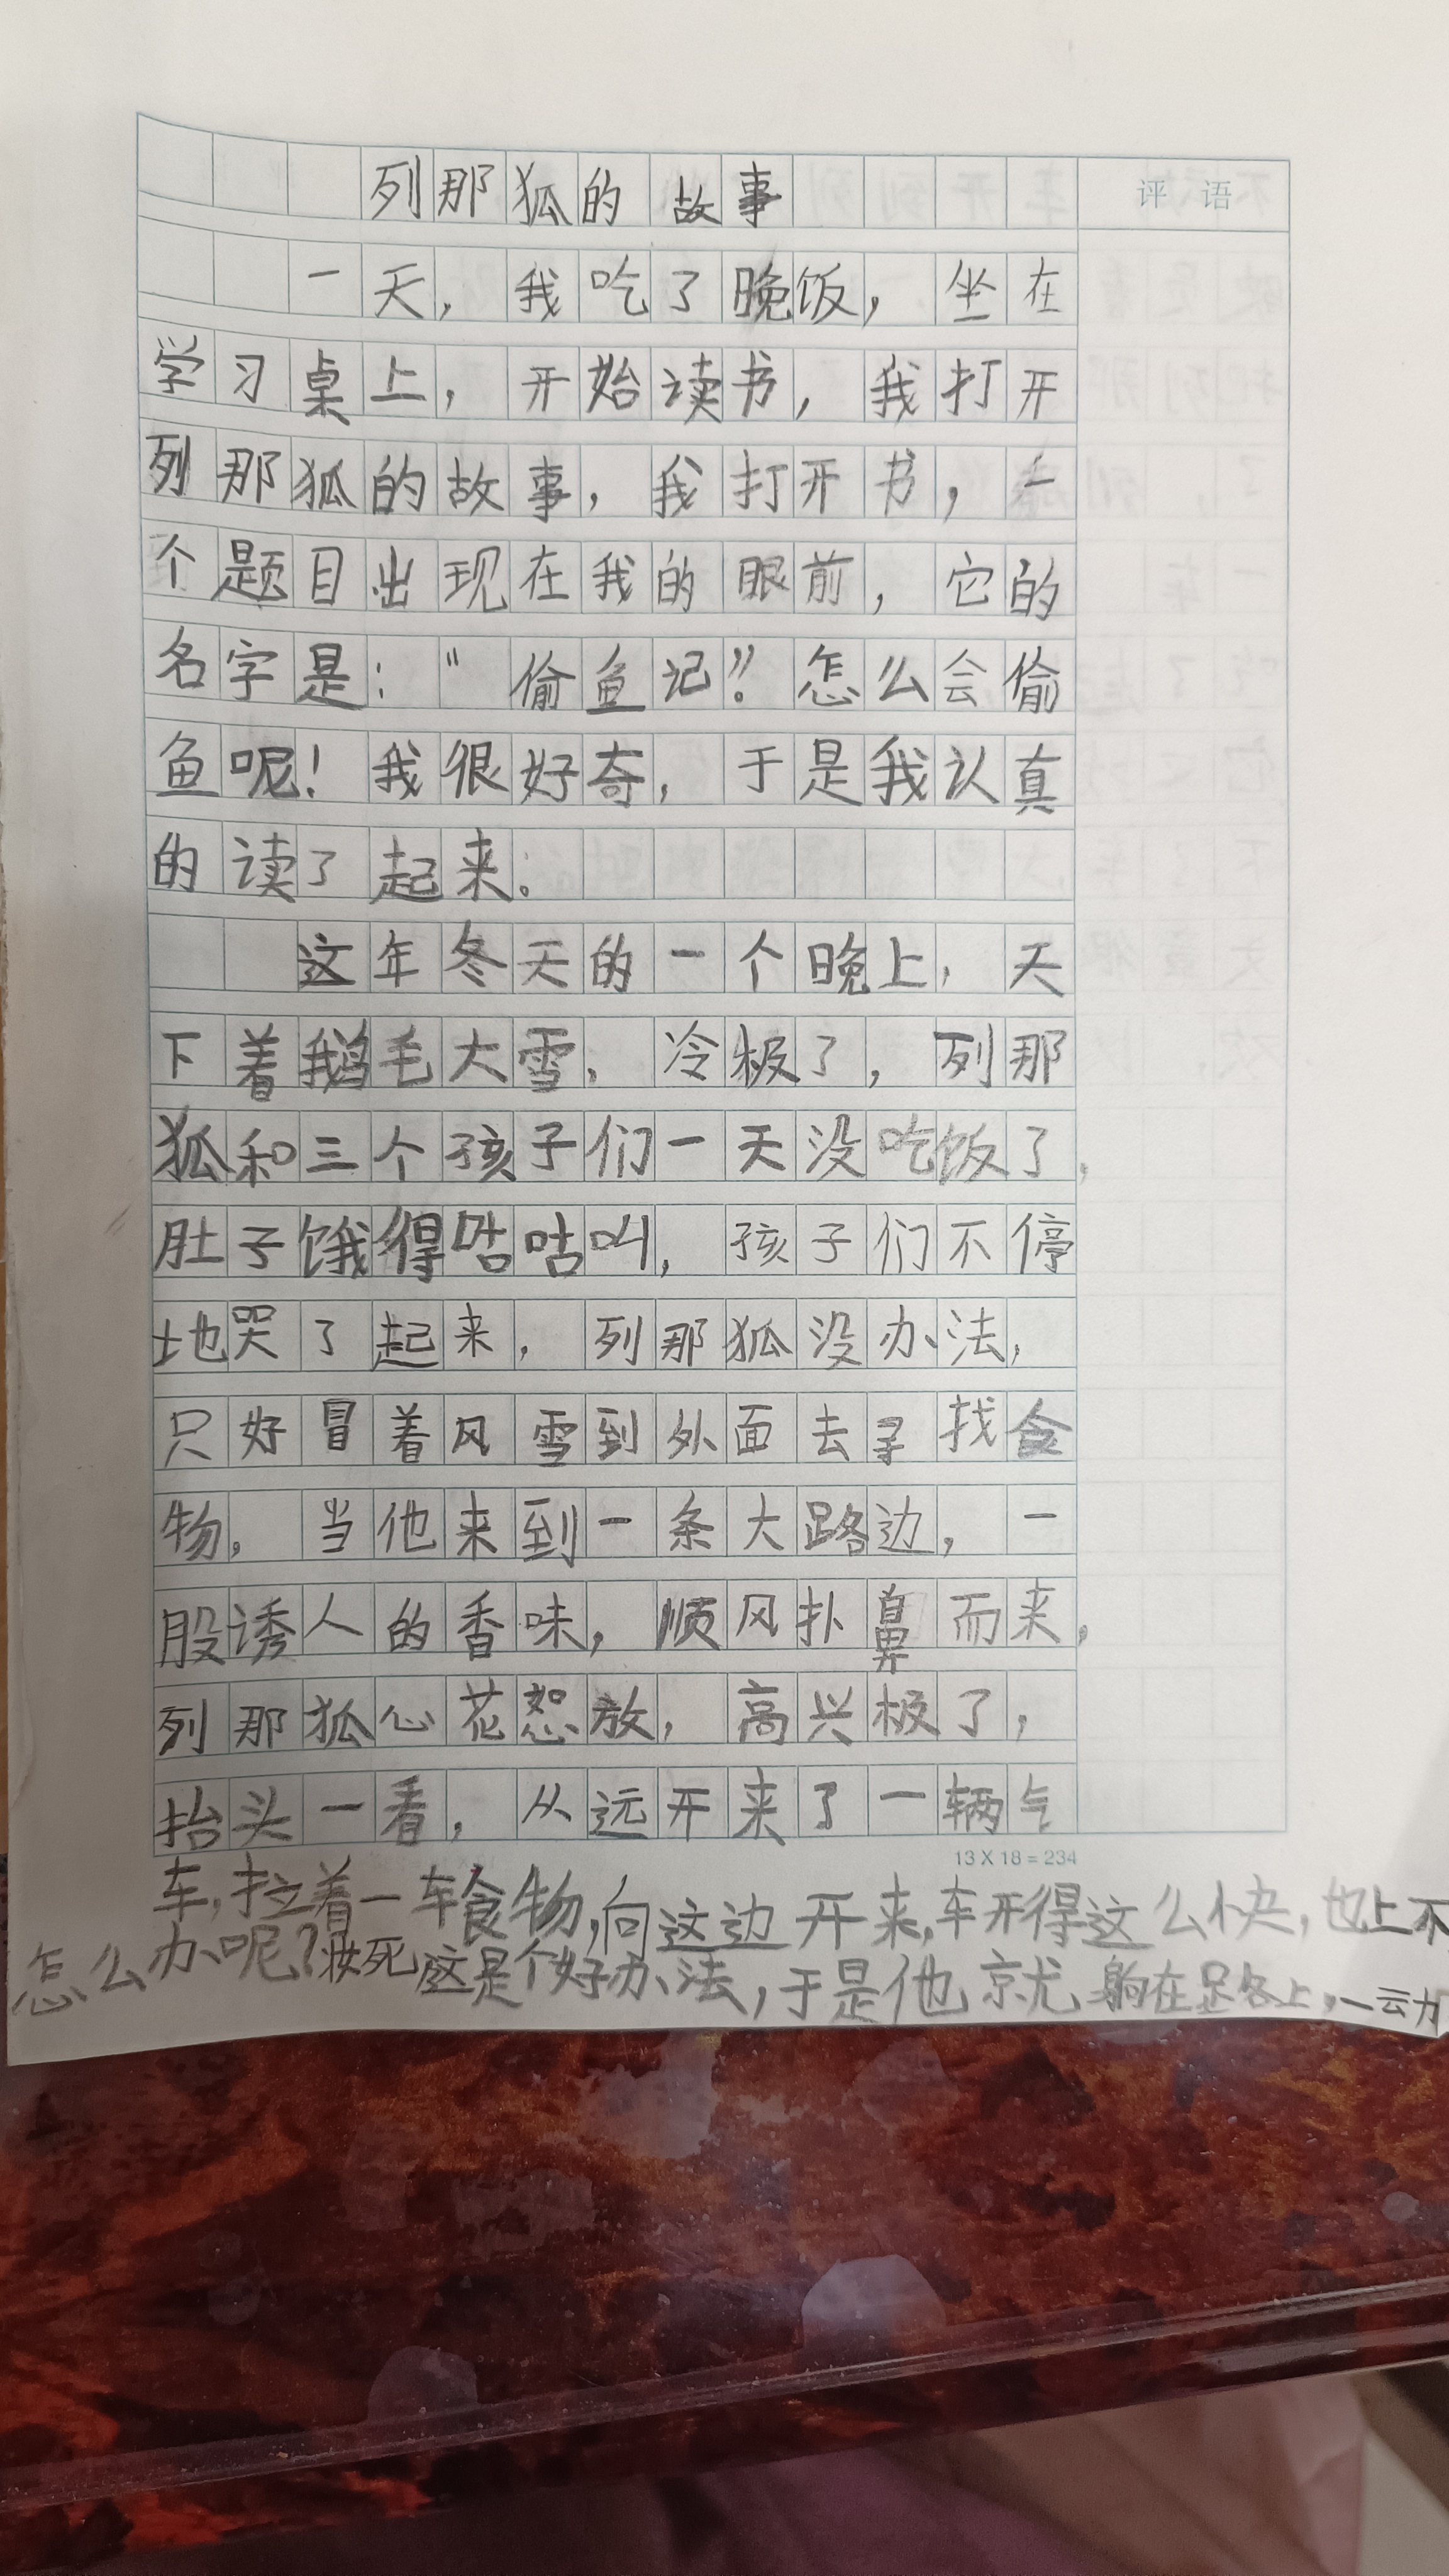 列那狐的故事
评语
一天，我吃了晚饭，坐在
学习桌上，开始读书，我打开
列那狐的故事，我打开书，一
个题目出现在我的眼前，它的
名字是：“偷鱼记”？怎么会偷
鱼呢！我很好奇，于是我认真
的读了起来。
这年冬天的一个晚上，天
下着鹅毛大雪，冷极了，列那
狐和三个孩子们一天没吃饭了，
肚子饿得咕咕叫，孩子们不停
地哭了起来，列那狐没办法，
只好冒着风雪到外面去寻找食
物，当他来到一条大路边，一
股诱人的香味，顺风扑鼻而来，
列那狐心花恕放，高兴极了，
抬头一看，从远开来了一辆气
13 X 18 = 234
车，拉着一车食物，向这边开来，车开得这么快，也上不
怎么办呢？妆死，这是个好办法，于是他就躺在路上，一动